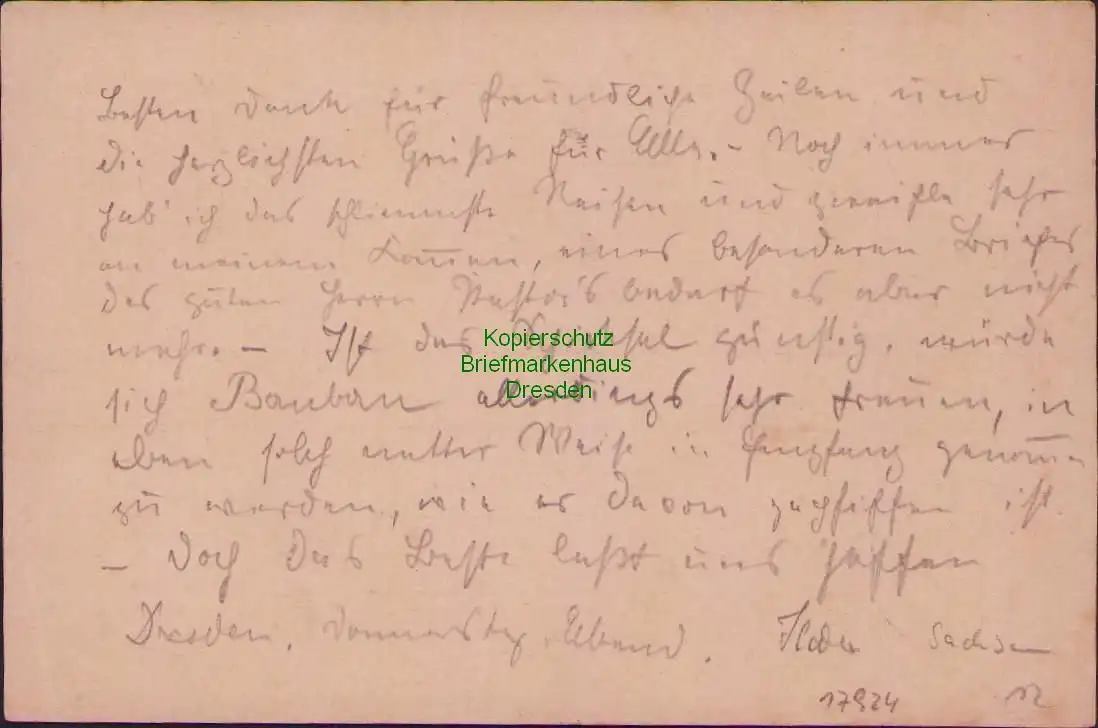 Besten Dank für freundliche Zeilen und
die herzlichsten Grüße für Alle. – Noch immer
hab' ich das schlimmste Reißen und zweifle sehr
an meinem Kommen, eines besonderen Briefes
des guten Herrn Pastor's bedarf es aber nicht
mehr. – Ist das Schicksal günstig, würde
Kopierschutz
Briefmarkenhaus
Dresden
sich allerdings sehr freuen, in
eben solch netter Weise in Empfang genommen
zu werden, wie es davon ist
– Doch das Beste laßt uns hoffen
Dresden, Donnerstag Abend. Sachsen
17924 12